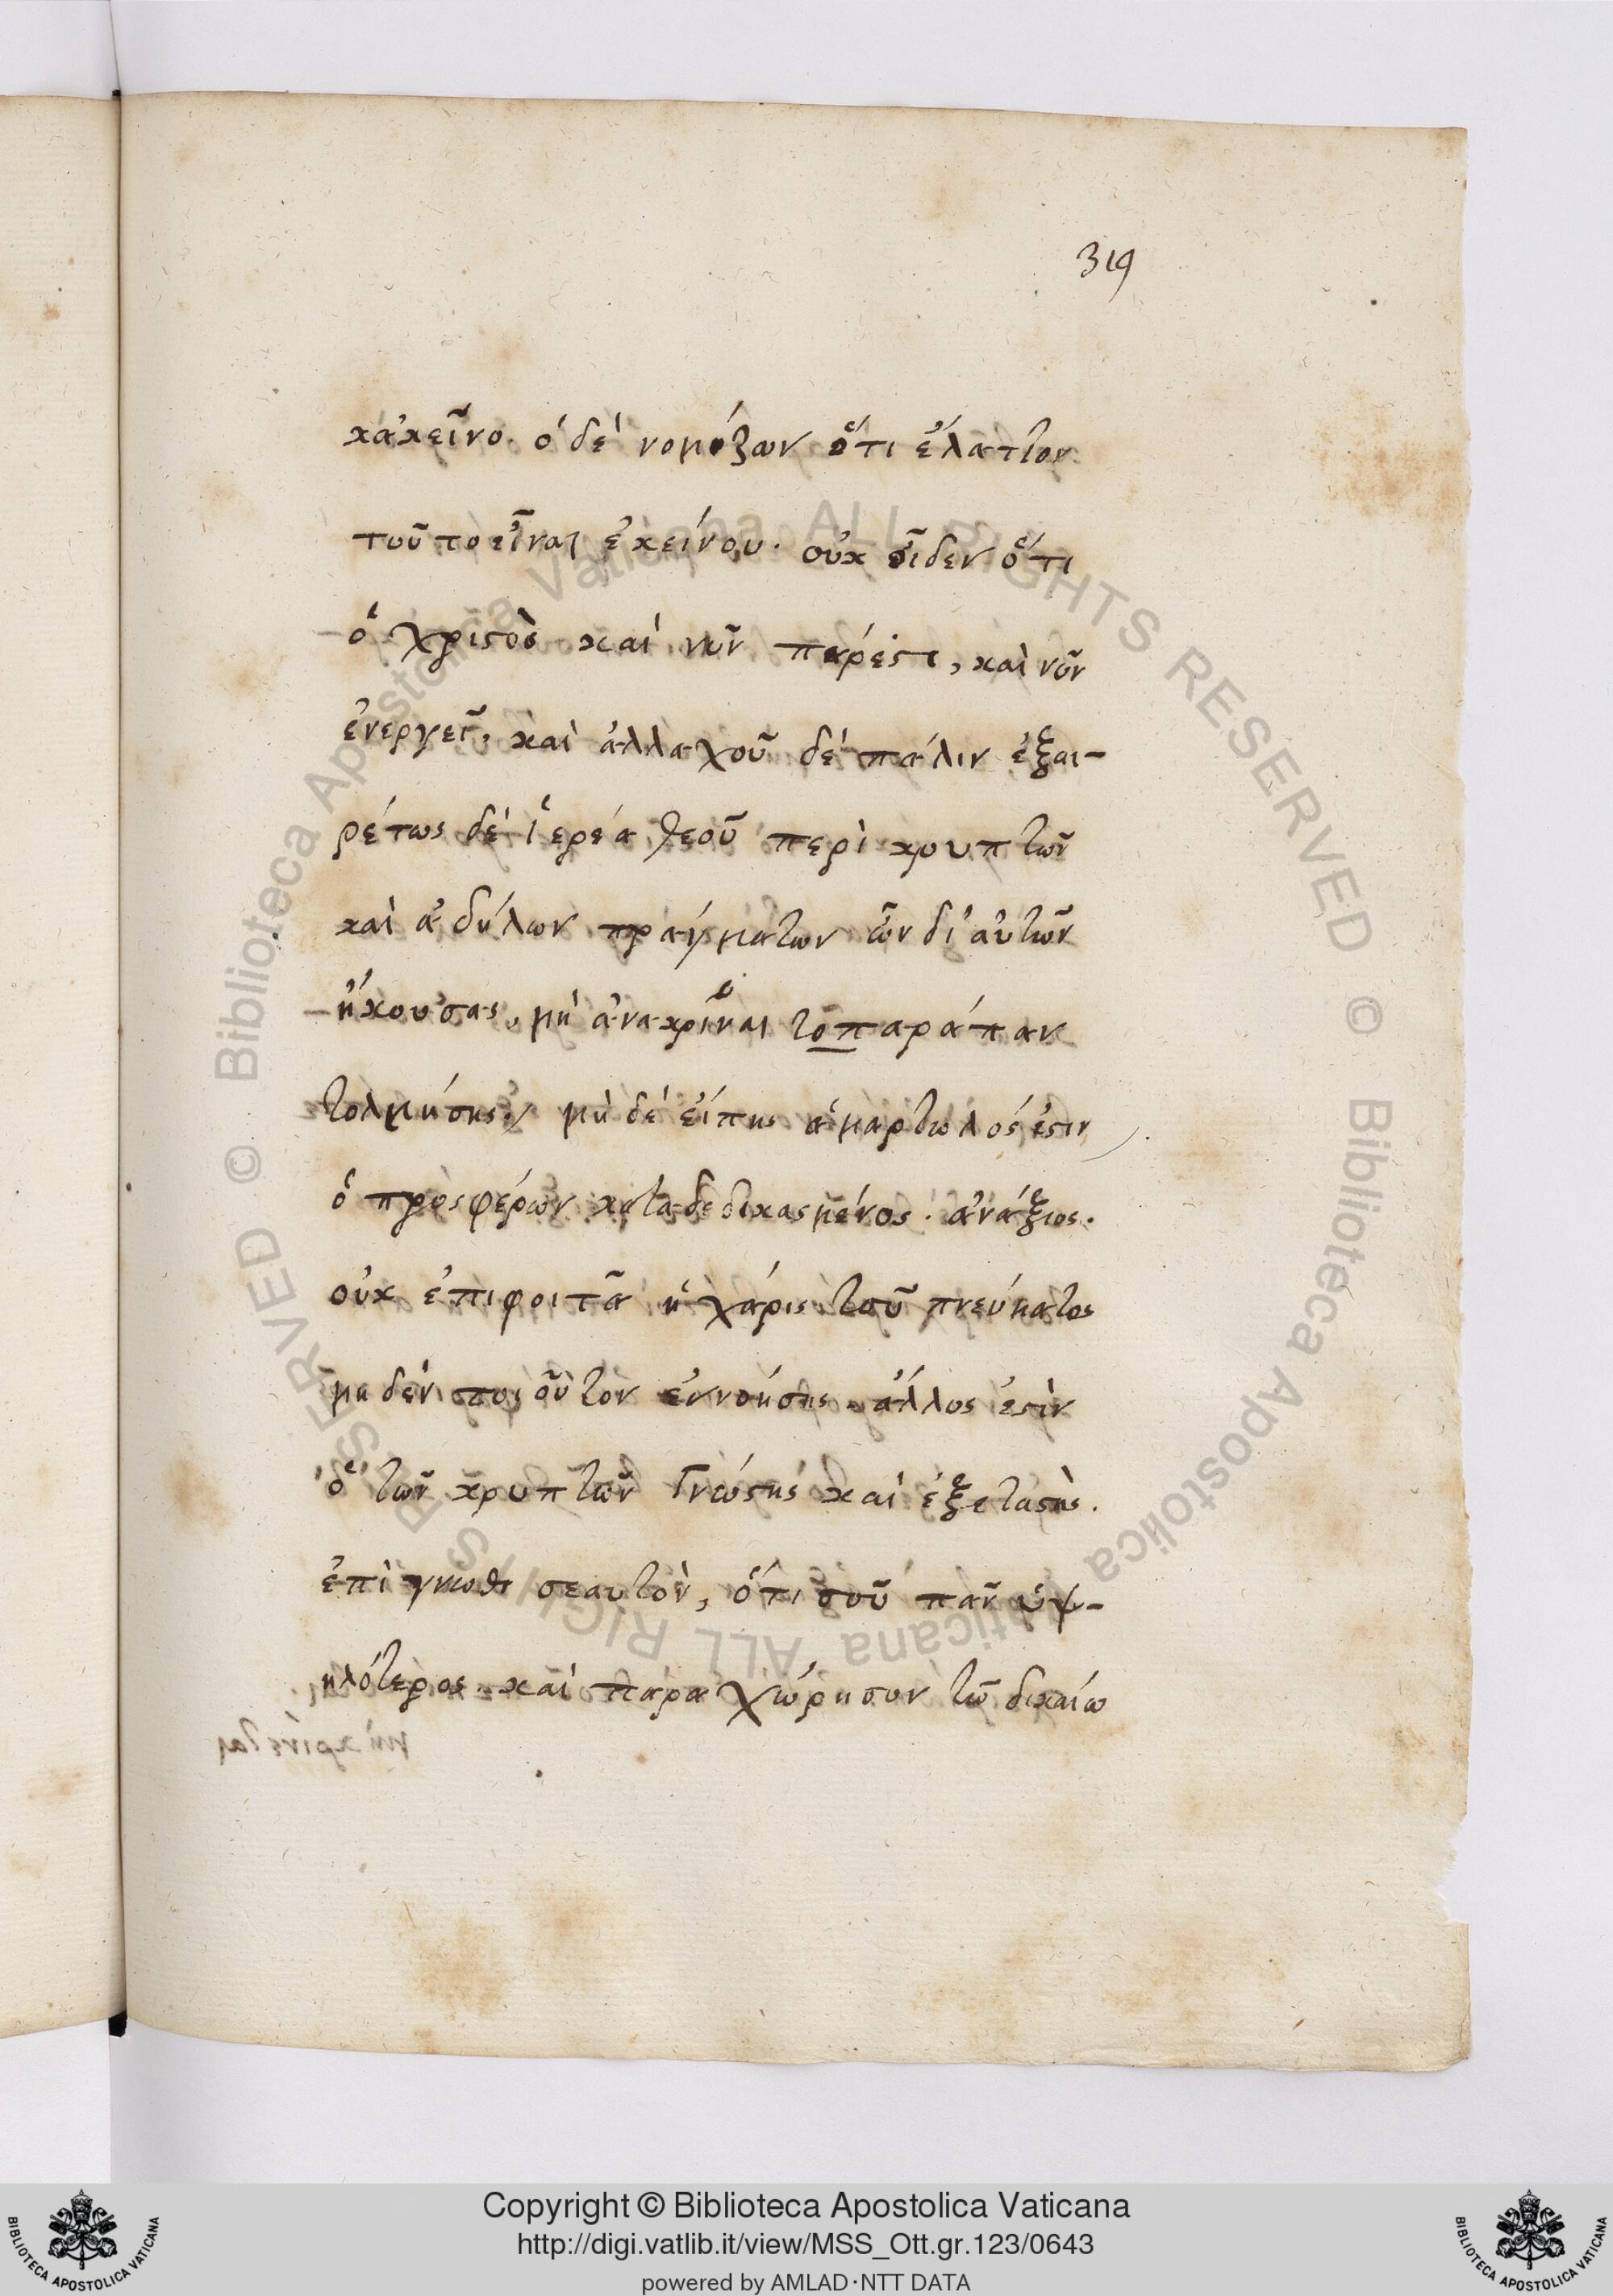 319
κἀκεῖνο. ὁ δὲ νομίζων ὅτι ἔλαττον
τοῦτο εἶναι ἐκείνου. οὐκ οἶδεν ὅτι
ὁ χριστὸς καὶ νῦν πάρεστι, καὶ νῦν
ἐνεργεῖ, καὶ ἀλλαχοῦ δὲ πάλιν ἐξαι-
ρέτως δὲ ἱερέα θεοῦ περὶ κρυπτῶν
καὶ ἀδήλων πραγμάτων ὧν δι' αὐτῶν
ἤκουσας, μὴ ἀνακρῖναι τοπαράπαν
τολμήσης, μὴ δὲ εἴπης ἁμαρτωλός ἐστιν
ὁ προσφέρων καταδεδικασμένος. ἀνάξιος.
οὐκ ἐπιφοιτᾶ ἡ χάρις τοῦ πνεύματος
μηδὲν τοιοῦτον ἐννοήσης. ἄλλος ἐστὶν
ὁ τῶν κρυπτῶν γνώστης καὶ ἐξεταστὴς.
ἐπίγνωθι σεαυτὸν, ὅτι σοῦ πᾶν ὑψ-
ηλότερος. καὶ παραχώρησον τῶ δικαίω
Copyright © Biblioteca Apostolica Vaticana
http://digi.vatlib.it/view/MSS_Ott.gr.123/0643
powered by AMLAD·NTT DATA
© Biblioteca Apostolica Vaticana ALL RIGHTS RESERVED © Biblioteca Apostolica Vaticana ALL RIGHTS RESERVED
BIBLIOTECA APOSTOLICA VATICANA
BIBLIOTECA APOSTOLICA VATICANA